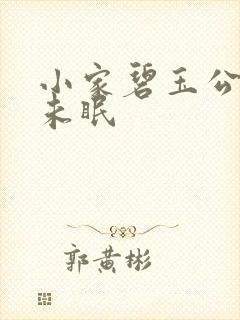 小家碧玉公
未眠
郭黄彬